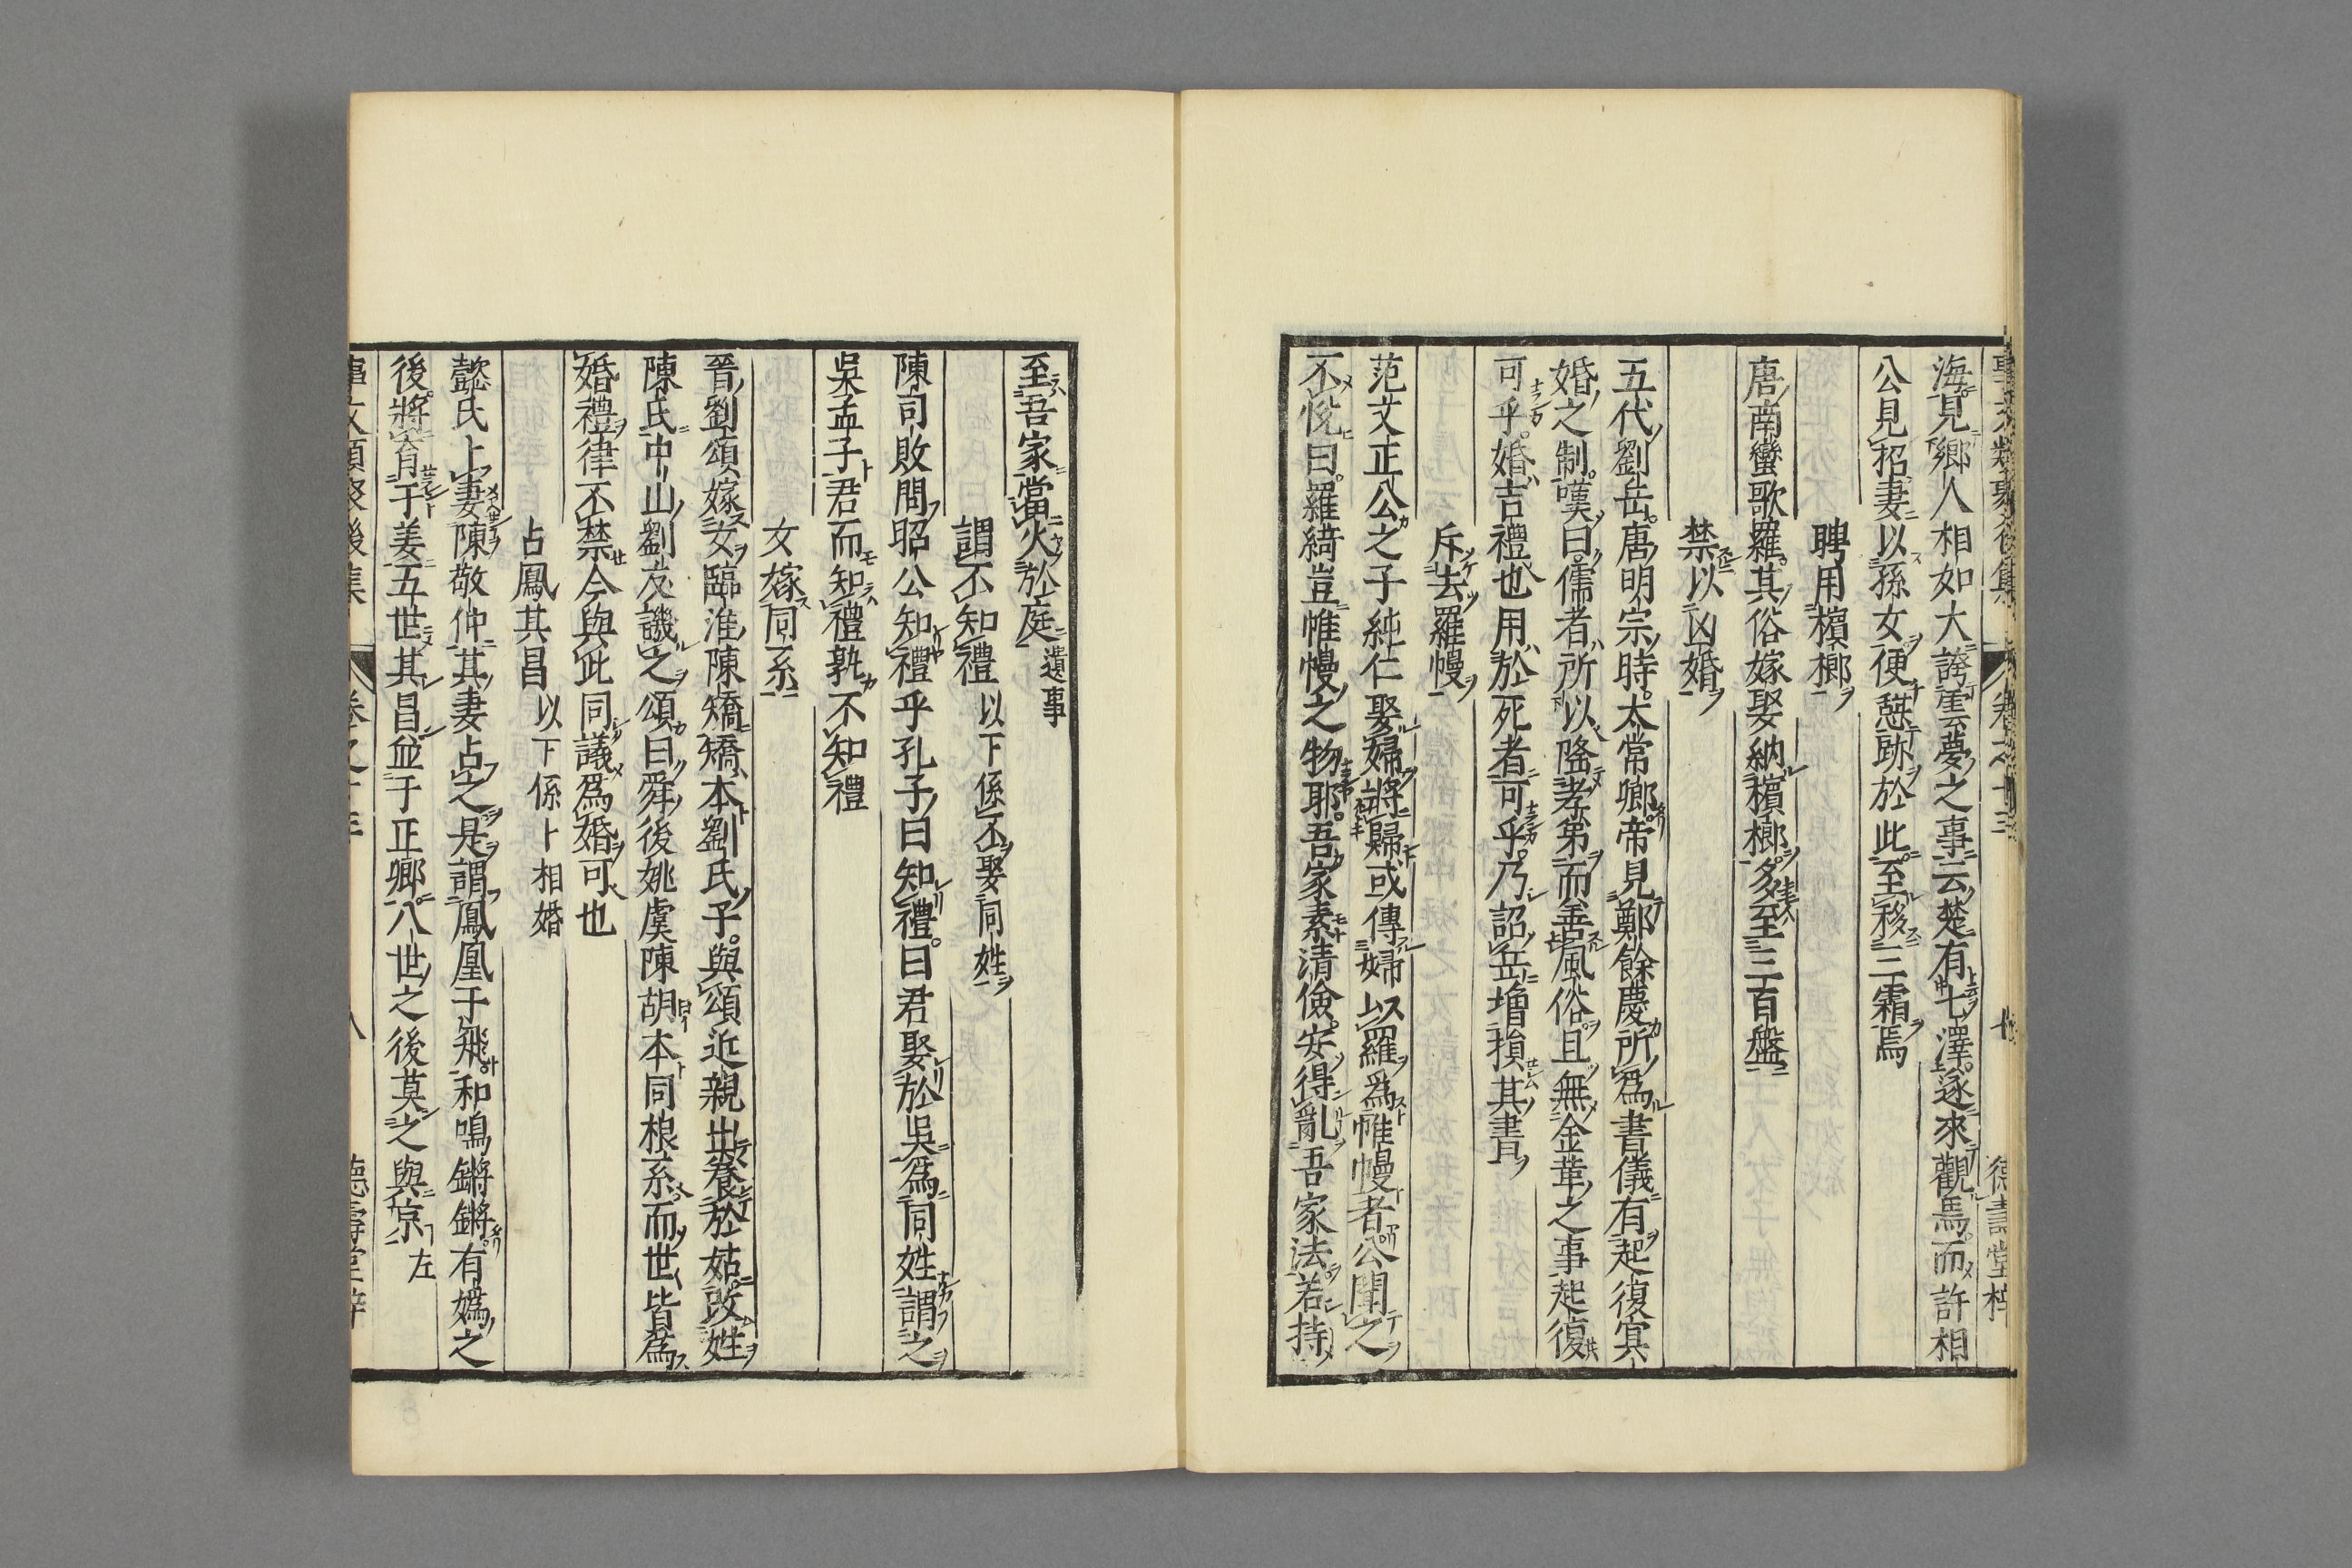 海見鄉人相如大誇雲夢之事云楚有七澤遂來觀焉而許相
公見招妻以孫女便憇跡於此至移三霜焉
聘用檳榔
唐南蠻歌羅其俗嫁娶納檳榔多至三百盤
禁以凶婚
五代劉岳唐明宗時太常卿帝見鄭餘慶所爲書儀有起復冥
婚之制嘆曰儒者所以隆孝弟而善風俗且無金革之事起復
可乎婚吉禮也用於死者可乎乃詔岳增損其書
斥去羅幔
范文正公之子純仁娶婦將歸或傳婦以羅爲帷幔者公聞之
不悅曰羅綺豈帷幔之物耶吾家素淸儉安得亂吾家法若持
至吾家當火於庭 遺事
謂不知禮 以下係不娶同姓
陳司敗問昭公知禮乎孔子曰知禮曰君娶於吳爲同姓謂之
吳孟子君而知禮孰不知禮
女嫁同系
晉劉頌嫁女臨淮陳矯矯本劉氏子與頌近親出養於姑改姓
陳氏中山劉友譏之頌曰舜後姚虞陳胡本同根系而世皆爲
婚禮律不禁今與此同議爲婚可也
占鳳其昌 以下係卜相婚
懿氏卜妻陳敬仲其妻占之是謂鳳凰于飛和鳴鏘鏘有嬀之
後將育于姜五世其昌並于正卿八世之後莫之與京 左